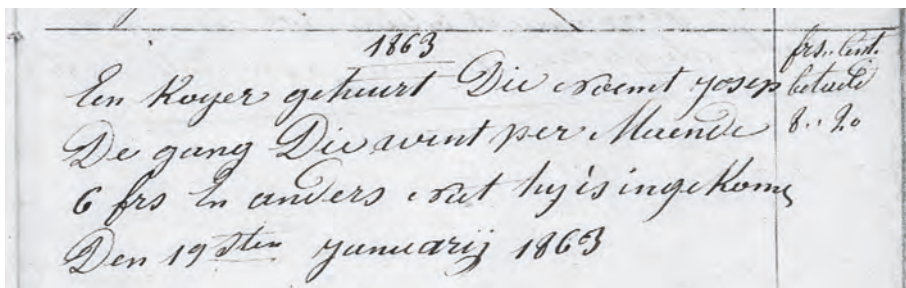 1863
frs.. Cent.
En Koyer gehuurt Die Noemt Josep
betaelt
De gang Die wint per Maende
8.. 90
6 frs En anders Niet hy is ingekome
Den 19sten Januarij 1863